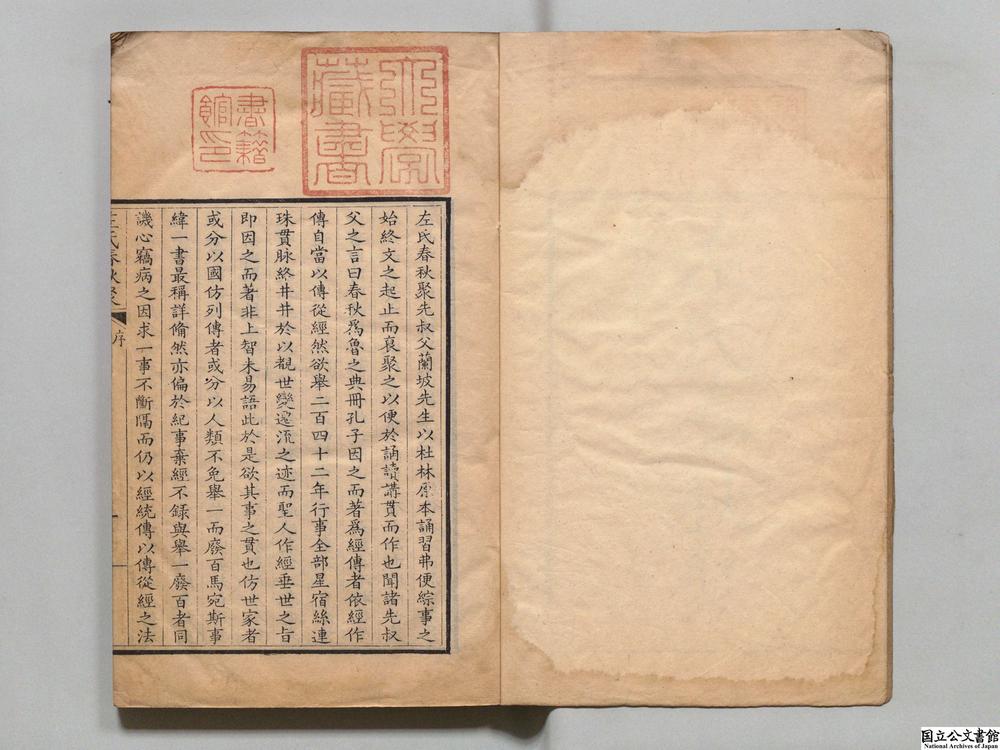 左氏春秋聚先叔父蘭坡先生以杜林原本誦習弗便綜事之
始終文之起止而裒聚之以便於誦讀講貫而作也聞諸先叔
父之言曰春秋爲魯之典冊孔子因之而著爲經傳者依經作
傳自當以傳從經然欲舉二百四十二年行事全部星宿絲連
珠貫脉終井井於以覩世變遷流之迹而聖人作經垂世之旨
即因之而著非上智未易語此於是欲其事之貫也仿世家者
或分以國仿列傳者或分以人類不免舉一而廢百馬宛斯事
緯一書最稱詳僃然亦偏於紀事棄經不録與舉一廢百者同
譏心竊病之因求一事不斷隔而仍以經統傳以傳從經之法
左氏春秋聚 序 一
大學藏書
書籍館印
国立公文書館
National Archives of Japan